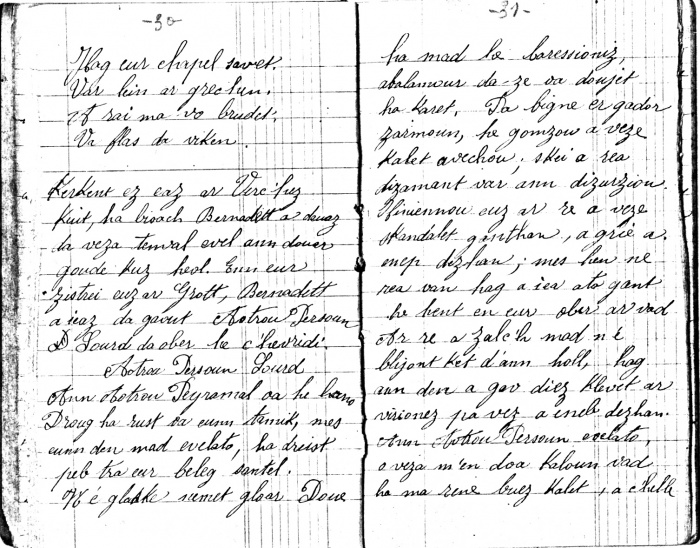 -30-
Hag eur chapel savet.
Var lein ar grec'hen.
A rai ma vo brudet.
Va flas da viken.
Kerkent ez eaz ar Verc'hez
kuit, ha bisach Bernadett a deuaz
da veza tenval evel ann douar
goude kuz heol. Enn eur
zistrei euz ar Grott, Bernadett
a ieaz da gaout Aotrou Persoun
Lourd da ober he c'hevridi.
Aotrou Persoun Lourd
Ann Aotrou Peyramal oa he hano
Droug ha rust oa eunn tamik, mes
eunn den mad evelato, ha dreist
peb tra eur beleg santel.
N'e glaske nemet gloar Doue
-31-
ha mad he baressioniz,
abalamour da-ze oa doujet
ha karet. Pa bigne er gador
zarmoun, he gomzou a veze
kalet avechou; skei a rea
dizamant var ann dizurziou.
Hiniennou euz ar re a veze
skandalet ganthan, a grie a
enep dezhan; mes heu ne
rea van hag a iea ato gant
he hent en eur ober ar vad
Ar re a zalc'h mad n'e
blijont ket d'ann holl, hag
ann den a gav diez klevet ar
virionez pa vez a eneb dezhan.
Ann Aotrou Persoun evelato,
a veza m'en doa kaloun vad
ha ma rene buez kalet, a c'helle